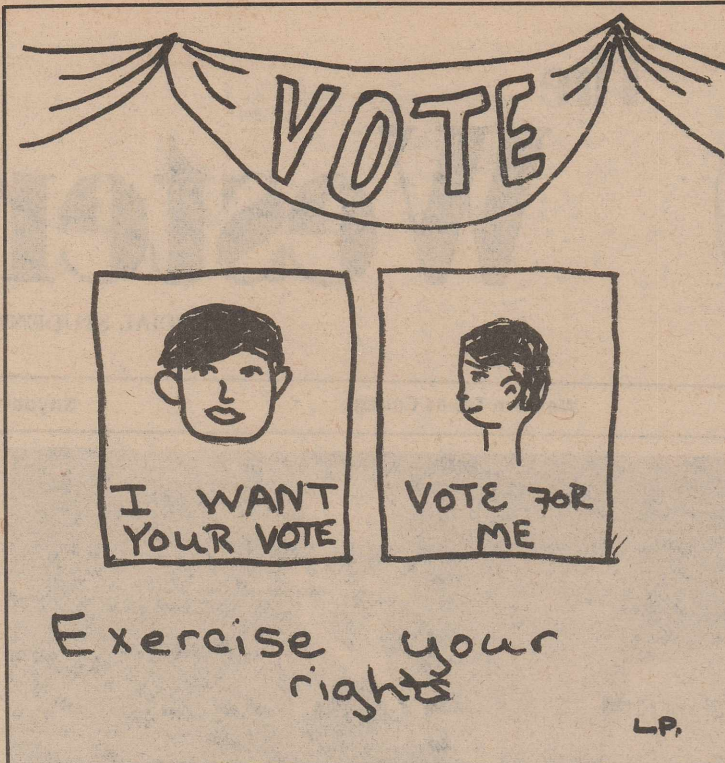 VOTE
I WANT
YOUR VOTE
VOTE FOR
ME
Exercise your
rights
L.P.